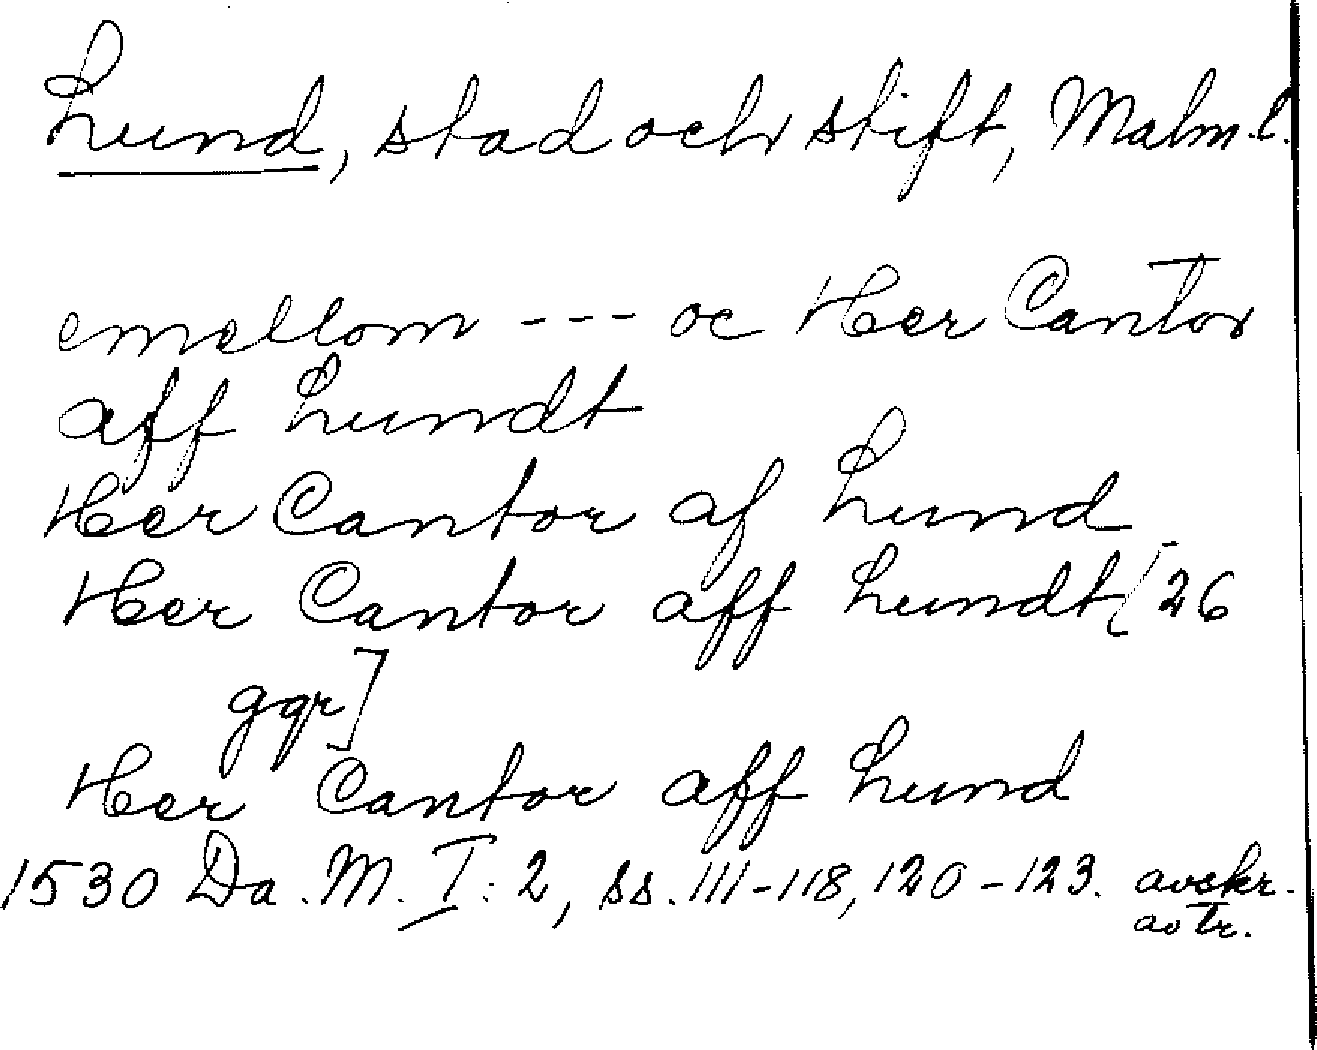 Lund, stad och stift, Malm.l.
emellom --- oc Her Cantor
aff Lundt
Her Cantor af Lund
Her Cantor aff Lundt [26
ggr]
Her Cantor aff Lund
1530 Da. M. I: 2, ss. 111-118, 120-123. avskr.
av tr.